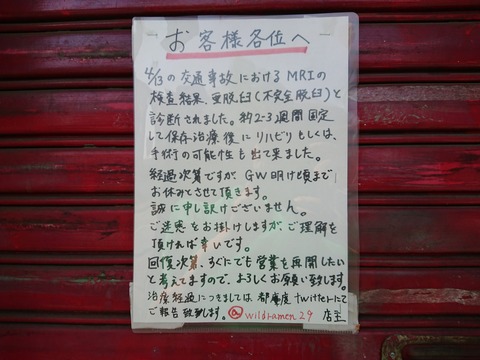 お客様各位へ
4/3の交通事故におけるMRIの
検査結果、亜脱臼(不完全脱臼)と
診断されました。約2~3週間固定
して保存治療後にリハビリもしくは、
手術の可能性も出て来ました。
経過次第ですが、GW明け頃まで
お休みとさせて頂きます。
誠に申し訳ございません。
ご迷惑をお掛けしますが、ご理解を
頂ければ幸いです。
回復次第、すぐにでも営業を再開したい
と考えてますので、よろしくお願い致します。
治療経過につきましては 都度 twitterにて
ご報告致します。@wildramen29 店主